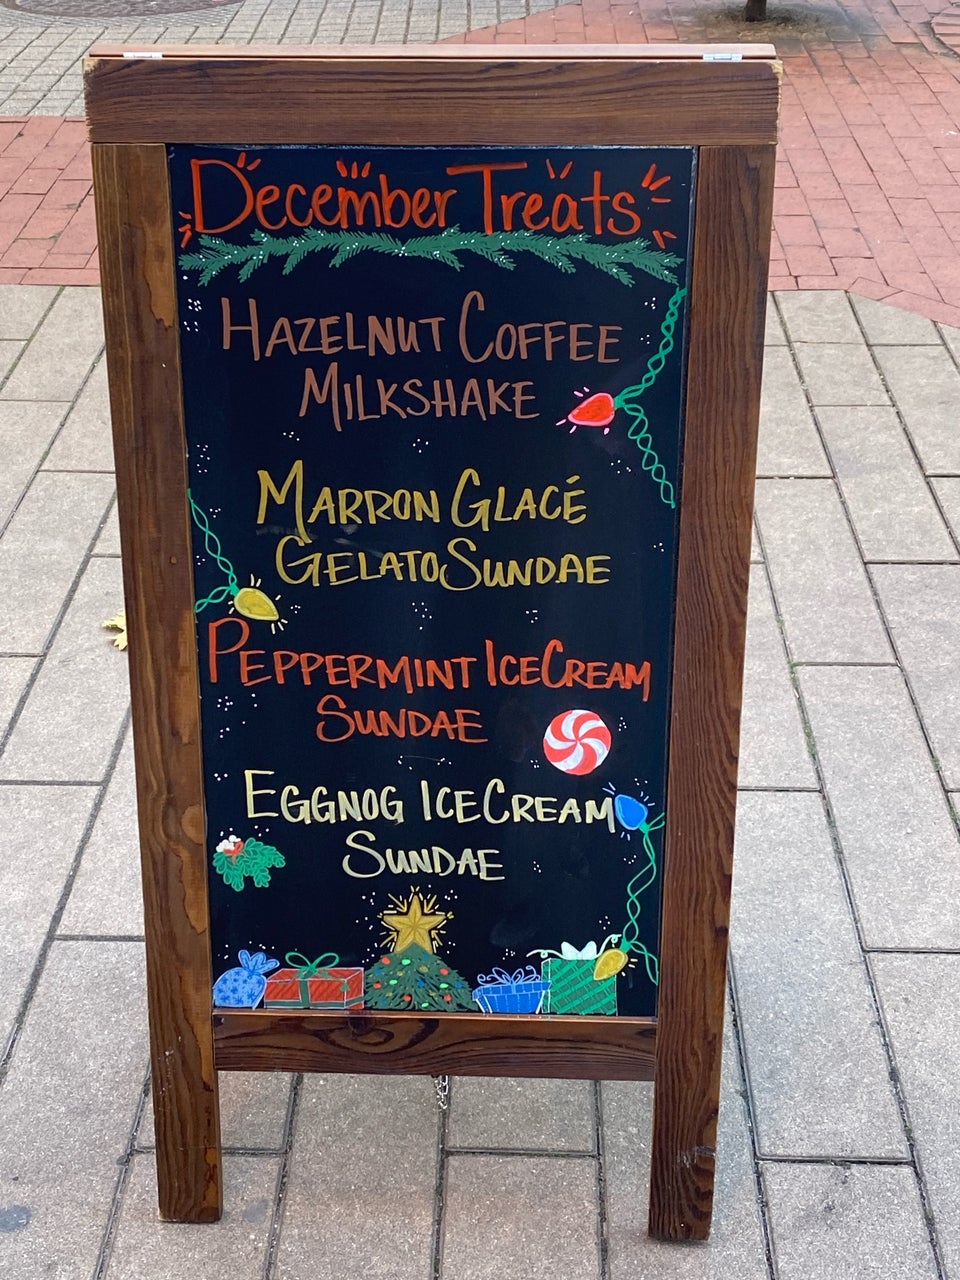 December Treats
HAZELNUT COFFEE
MILKSHAKE
MARRON GLACÉ
GELATO SUNDAE
PEPPERMINT ICE CREAM
SUNDAE
EGGNOG ICE CREAM
SUNDAE